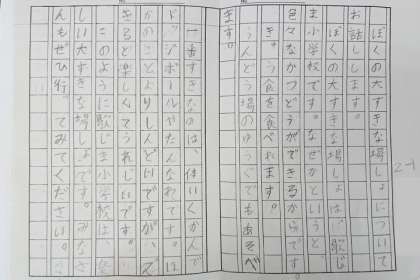 ぼくの大すきな場しょについて
お話しします。
ぼくの大すきな場しょは、歌じ
ま小学校です。なぜかというと、
色々なかつどうができるからです
食を食べれます。
うんどう場のゆうぐでもあそべ
ます。
一番すきなのは、体いくかんで
ドッジボールや
かのことよりしんどいですが、
きると楽しくてうれしいです。
このように歌じま小学校は、楽
しい大すきな場しょです。みなさ
んもぜひ行ってみてください。